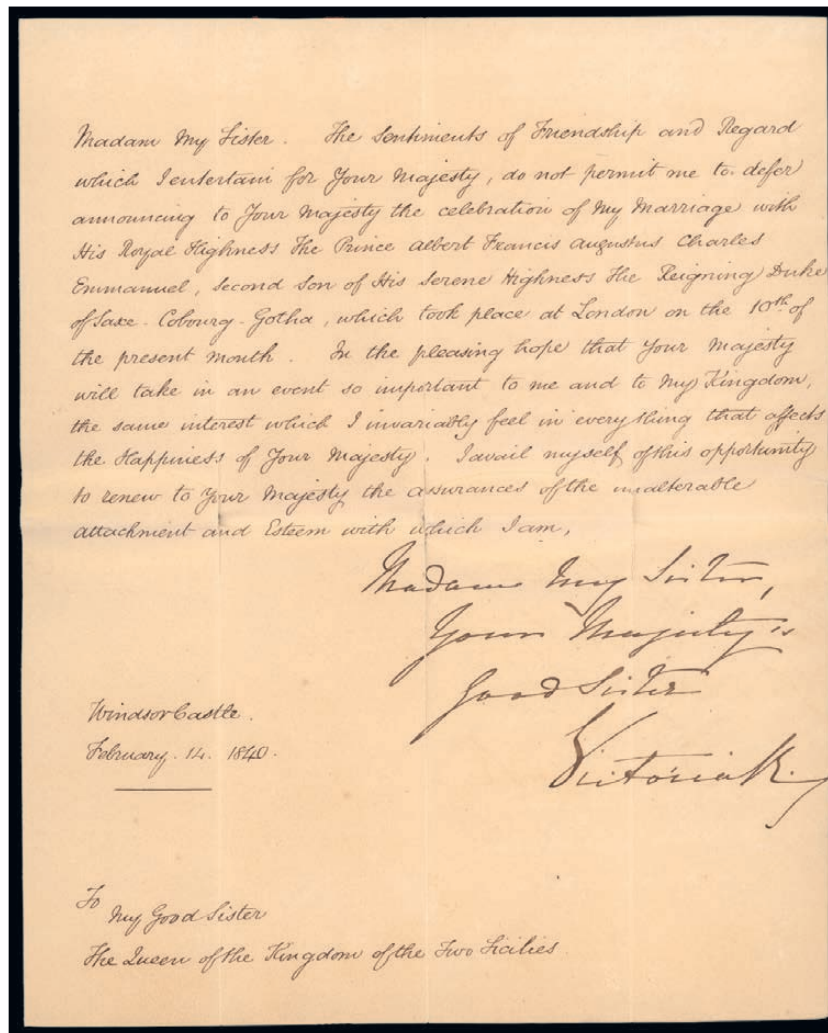 Madam My Sister. The Sentiments of Friendship and Regard
which I entertain for Your Majesty, do not permit me to defer
announcing to Your Majesty the celebration of My Marriage with
His Royal Highness The Prince Albert Francis Augustus Charles
Emmanuel, Second Son of His Serene Highness The Reigning Duke
of Saxe-Cobourg-Gotha, which took place at London on the 10th of
the present month. In the pleasing hope that Your Majesty
will take in an event so important to me and to My Kingdom,
the same interest which I invariably feel in everything that affects
the Happiness of Your Majesty. I avail myself of this opportunity
to renew to Your Majesty the assurances of the unalterable
attachment and Esteem with which I am,
Madam My Sister,
Your Majesty's
Good Sister
Victoria R.
Windsor Castle.
February. 14. 1840.
To
My Good Sister
The Queen of the Kingdom of the Two Sicilies